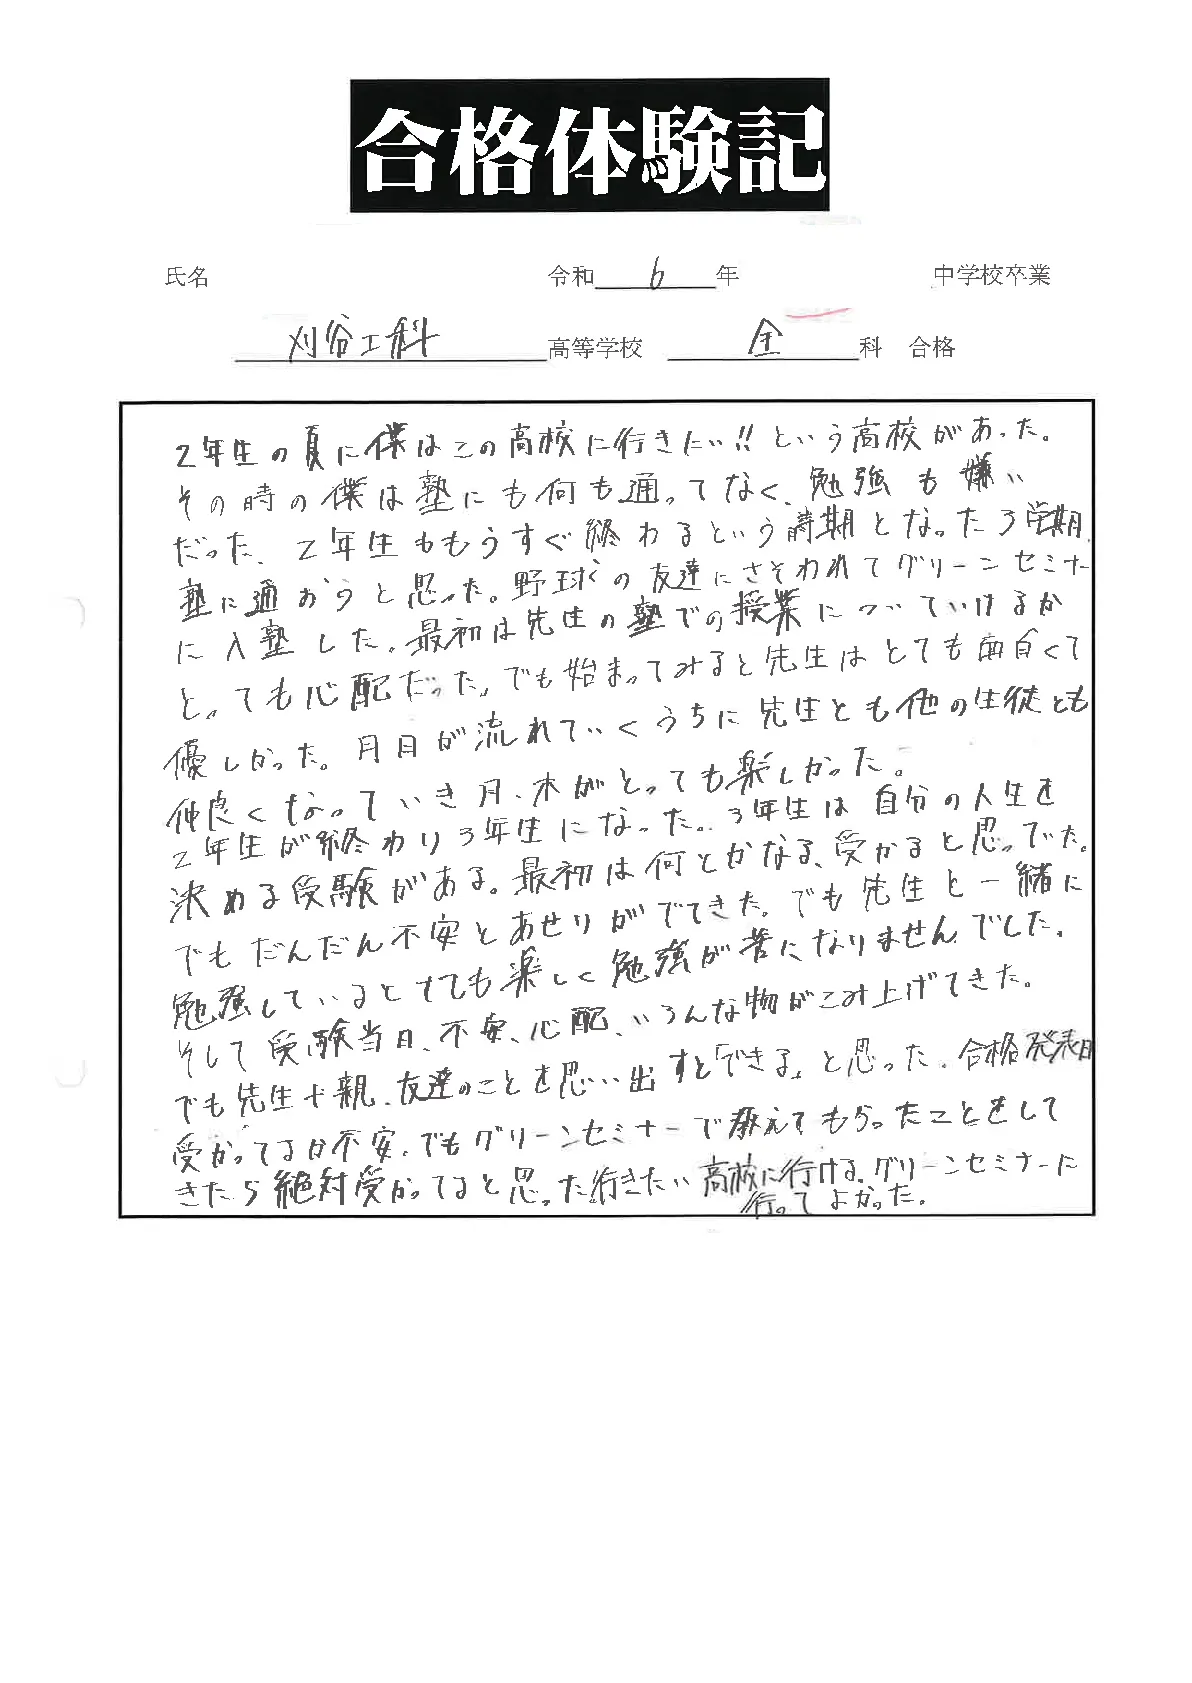 合格体験記
氏名 令和 6 年 中学校卒業
刈谷工科 高等学校 全 科 合格
2年生の夏に僕はこの高校に行きたい!!という高校があった。
その時の僕は塾にも何も通ってなく、勉強も嫌い
だった、2年生ももうすぐ終わるという時期となった3学期、
塾に通おうと思った。野球の友達にさそわれてグリーンセミナー
に入塾した。最初は先生の塾での授業についていけるか
とっても心配だった。でも始まってみると先生はとても面白くて
優しかった。月日が流れていくうちに先生とも他の生徒とも
仲良くなっていき月、木がとっても楽しかった。
2年生が終わり3年生になった。3年生は自分の人生を
決める受験がある。最初は何とかなる、受かると思ってた。
でもだんだん不安とあせりがでてきた。でも先生と一緒に
勉強しているとても楽しく勉強が苦になりませんでした。
そして受験当日、不安、心配、いろんな物がこみ上げてきた。
でも先生や親、友達のことを思い出すと「できる」と思った。合格発表日
受かってるか不安、でもグリーンセミナーで教えてもらったことをして
きたら絶対受かってると思った。行きたい高校に行ける。グリーンセミナーに
行ってよかった。